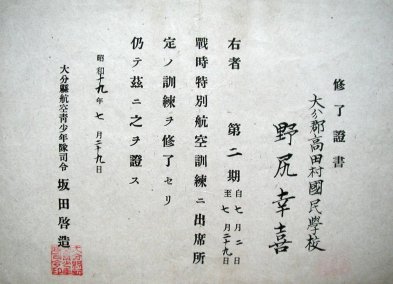 修了證書
大分郡高田村國民學校
野尻幸喜
右者 第二期 自七月二日
至七月二十九日
戰時特別航空訓練ニ出席所
定ノ訓練ヲ修了セリ
仍テ茲ニ之ヲ證ス
昭和十九年七月二十九日
大分縣航空青少年隊司令 坂田啓造